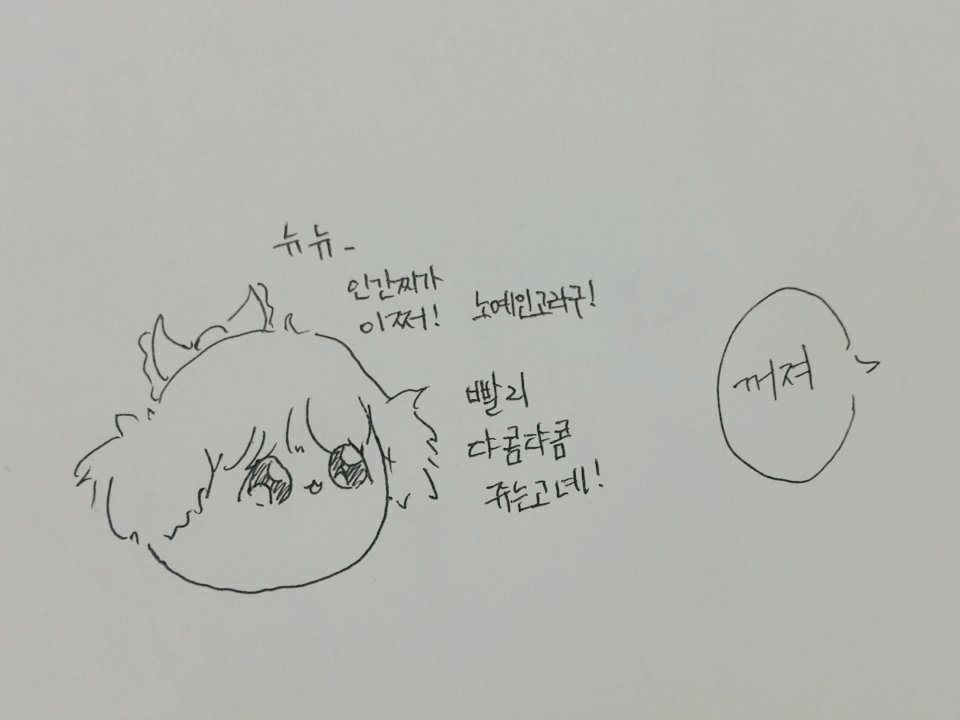 뉴뉴-
인간찌가
이쩌!
노예인고라구!
빨리
댜콤댜콤
쥬는고녜!
꺼져